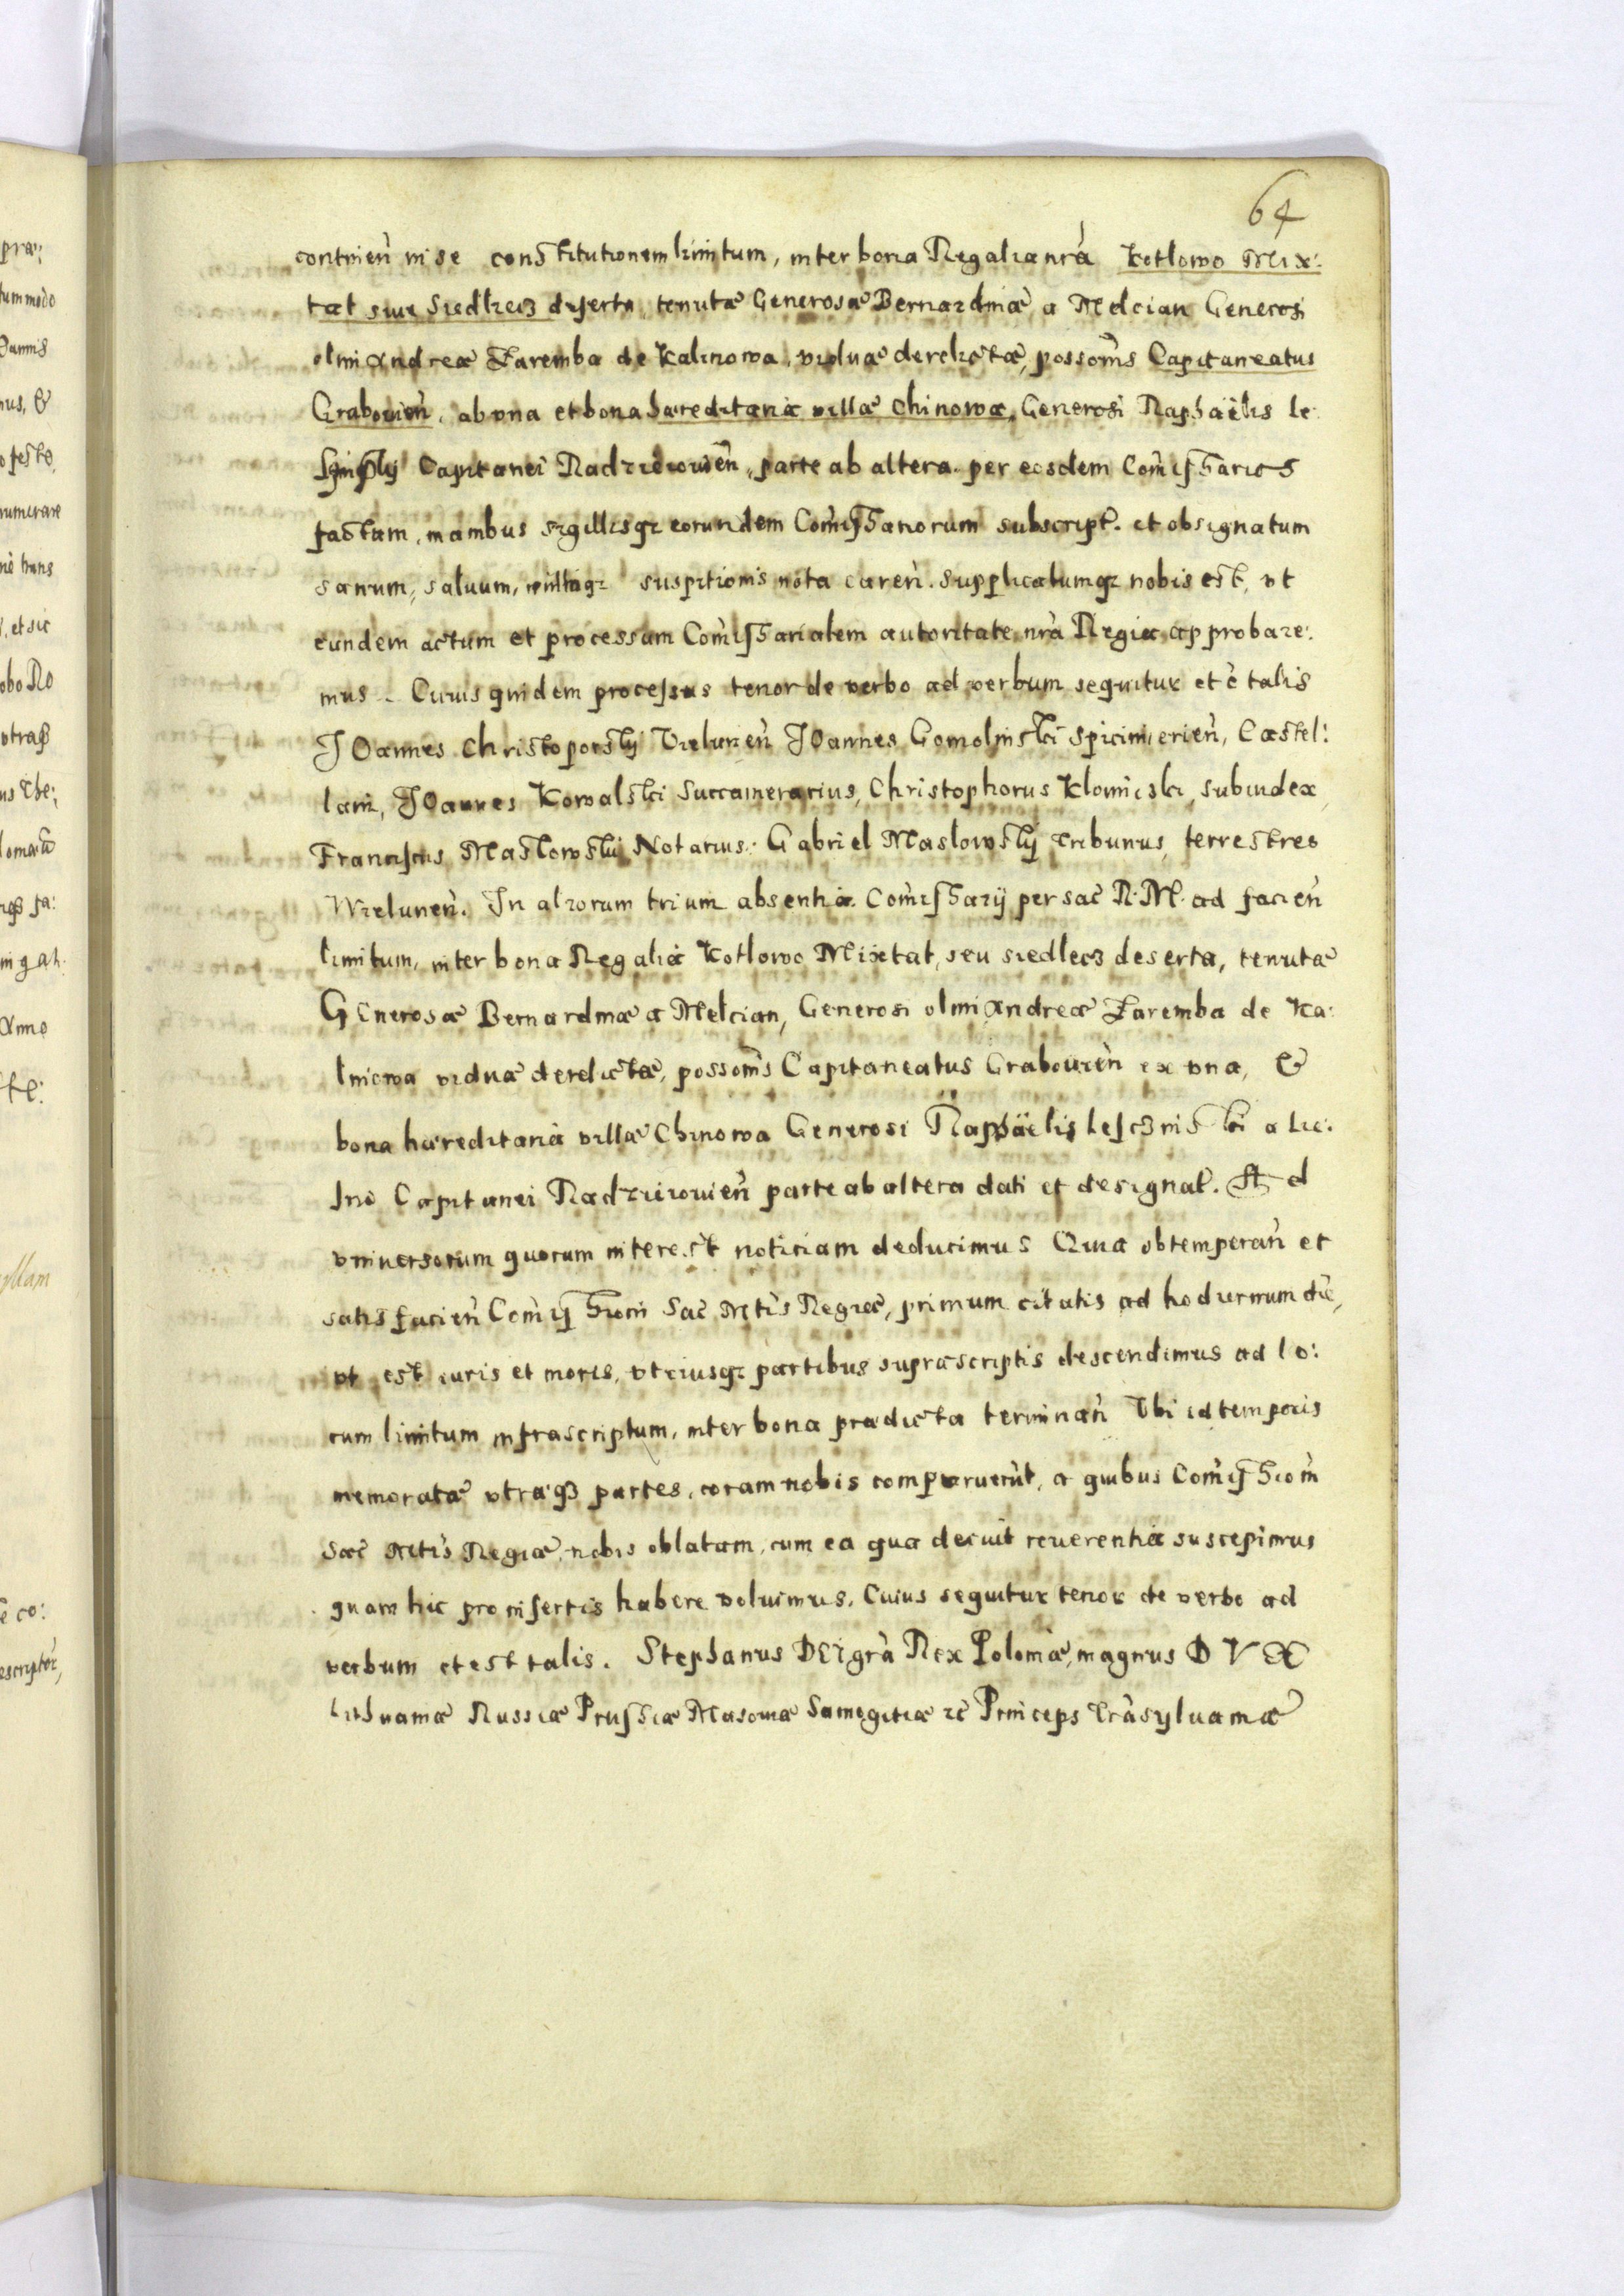 64
continen̄ in se constitutionem limitum, inter bona Regalia nrā Kotlowo Mix:
tat siue Siedlecz deserta, tenutæ Generosæ Bernardinæ a Melcian Generosi
olim Andreæ Zaremba de Kalinowa, viduæ derelictæ, possom̄s Capitaneatus
Grabouien̄, ab vna et bona hæreditaria villæ Chinowa, Generosi Raphaëlis le:
Capitanei Radzieiouien̄, parte ab altera per eosdem Com̄issarios
factam, manibus sigillisqz eorundem Com̄issariorum subscript. et obsignatum
sanum, saluum, nullaqz suspitionis nota caren̄. Supplicatumqz nobis est, vt
eundem actum et processum Com̄issarialem autoritate nrā Regia approbare:
mus. Cuius quidem processus tenor de verbo ad verbum sequitur et ē talis
JOannes Christoporsky Vielunen̄ JOannes Gomolinski Spicimierien̄, Castel:
lani, JOannes Kowalski Succamerarius, Christophorus Klomicski, subiudex,
Franciscus Maslowsky Notarius: Gabriel Maslowsky tribunus, terrestres
Wielunen̄. In aliorum trium absentia Com̄issarij per sac̄ R: M. ad facien̄
limitum, inter bona Regalia Kotlowo Mixtat, seu siedlecz deserta, tenutæ
GEnerosæ Bernardinæ a Melcian, Generosi olim Andreæ Zaremba de Ka:
linowa viduæ derelictæ, possom̄s Capitaneatus Grabouien̄ ex vna, &
bona hæreditaria villæ Chinowa Generosi Raphaëlis lesczinski a Lie:
sno Capitanei Radzieiouien̄ parte ab altera dati et designat. Ad
vniuersorum quorum interest noticiam deducimus Quia obtemperan̄ et
satisfacien̄ Com̄issioni Sac̄ Mtis Regiæ, primum citatis ad hodiernum diē,
vt est iuris et moris, vtriusqz partibus suprascriptis descendimus ad lo:
cum limitum infrascriptum, inter bona prædicta terminan̄ Vbi id temporis
memoratæ vtræqz partes, coram nobis comparuerūt, a quibus Com̄issiom̄
Sac̄ Mtis Regiæ, nobis oblatam, cum ea qua decuit reuerentia suscepimus
quam hic pro insertis habere voluimus. Cuius sequitur tenor de verbo ad
verbum et est talis. Stephanus DEI grā Rex Poloniæ, magnus DVX
Lithuaniæ Russiæ Prussiæ Masouiæ Samogitiæ zc̄ Princeps Trāsyluaniæ